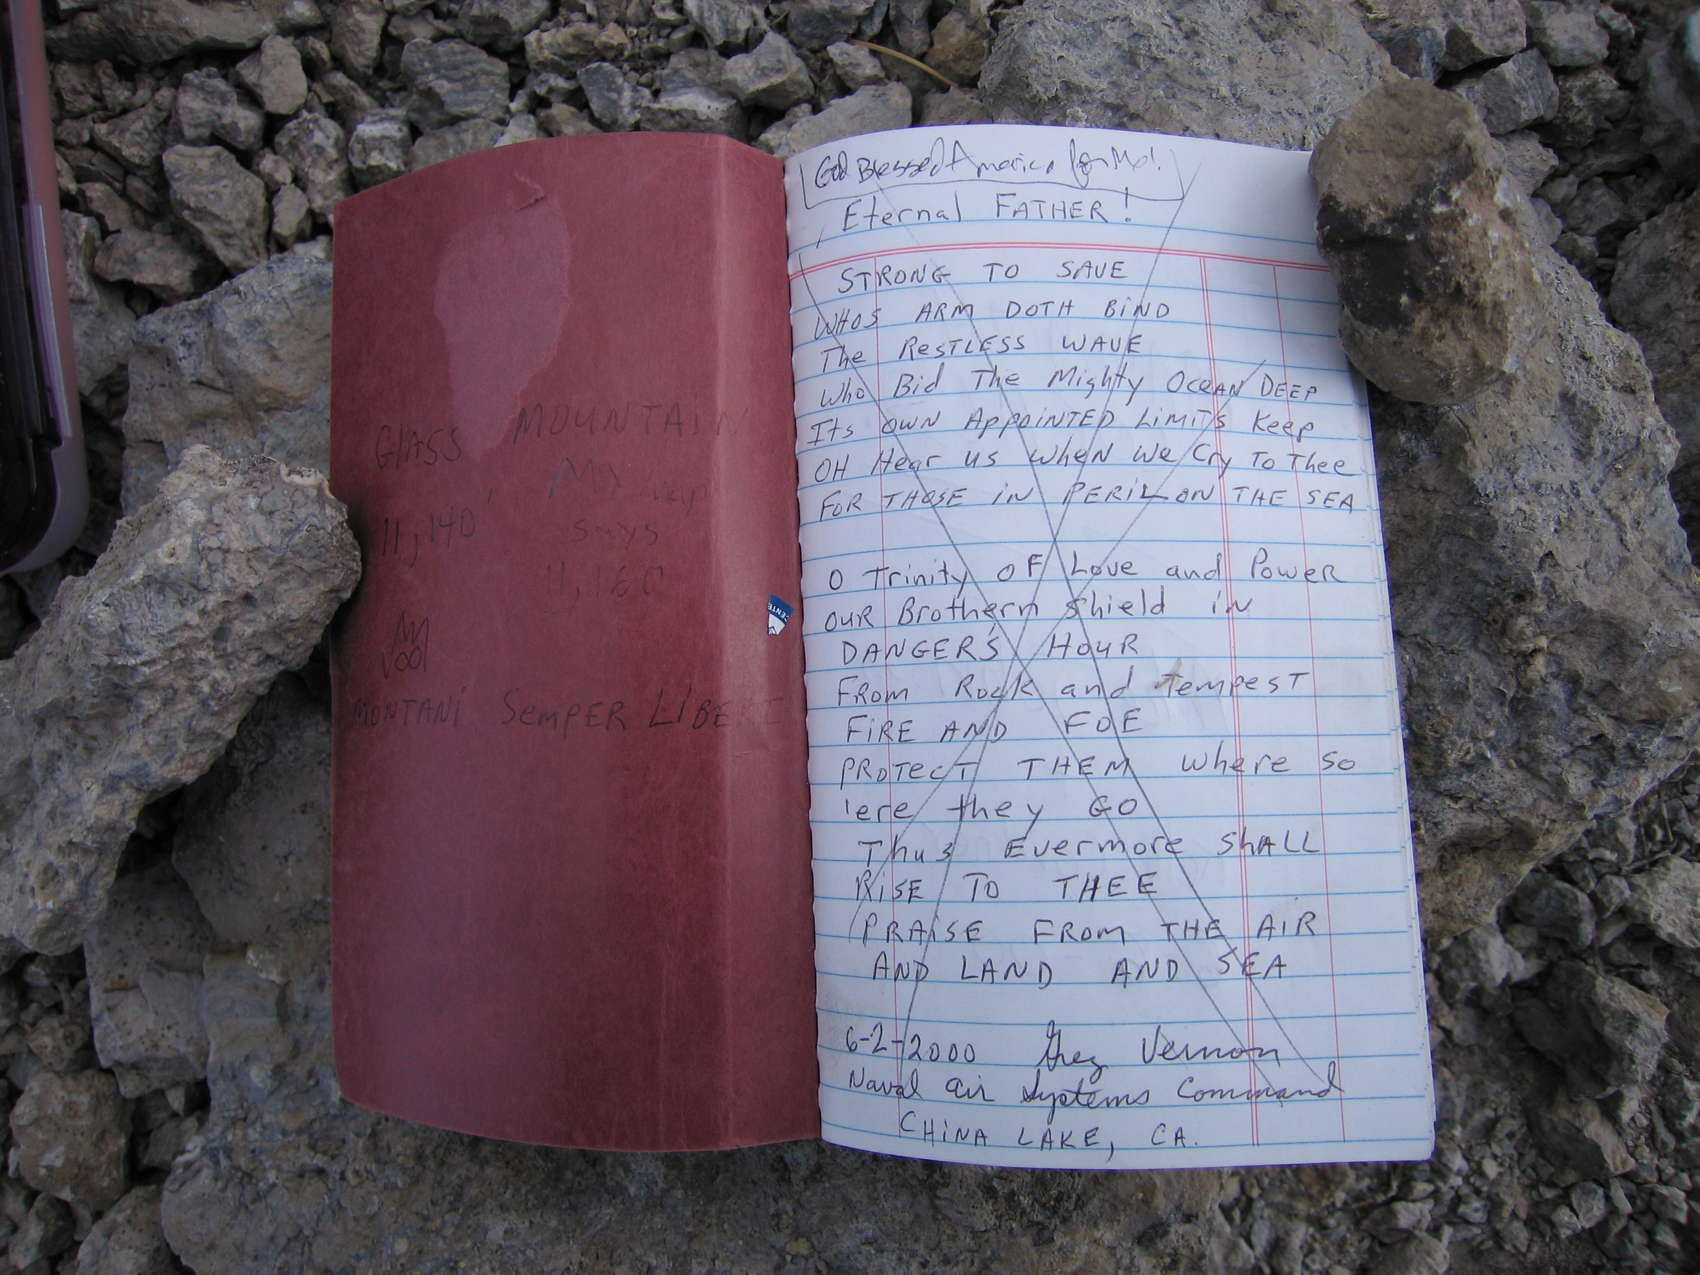 GlASS MOUNTAIN
11,140 My map
says
11,160
MONTANI SemPER LIBERI
CENTE
God Blessed America for Me!
Eternal FATHER!
STRONG TO SAVE
WHOS ARM DOTH BiND
The RESTLESS WAVE
Who Bid The Mighty OceAN DEEP
Its OWN APPOiNTED LiMiTS Keep
OH Hear us when we Cry To Thee
FOR THOSE iN PERIL ON THE SEA
O Trinity OF Love and POWER
OUR Brothern shield iN
DANGER'S HOUR
FROM Rock and TEMPEST
FiRE AND FOE
PROTECT THEM Where So
'ere they GO
Thus Evermore ShALL
RiSE TO THEE
PRAiSE FROM THE AiR
AND LAND AND SEA
6-2-2000 Greg Vernon
Naval Air Systems Command
CHiNA LAKE, CA.